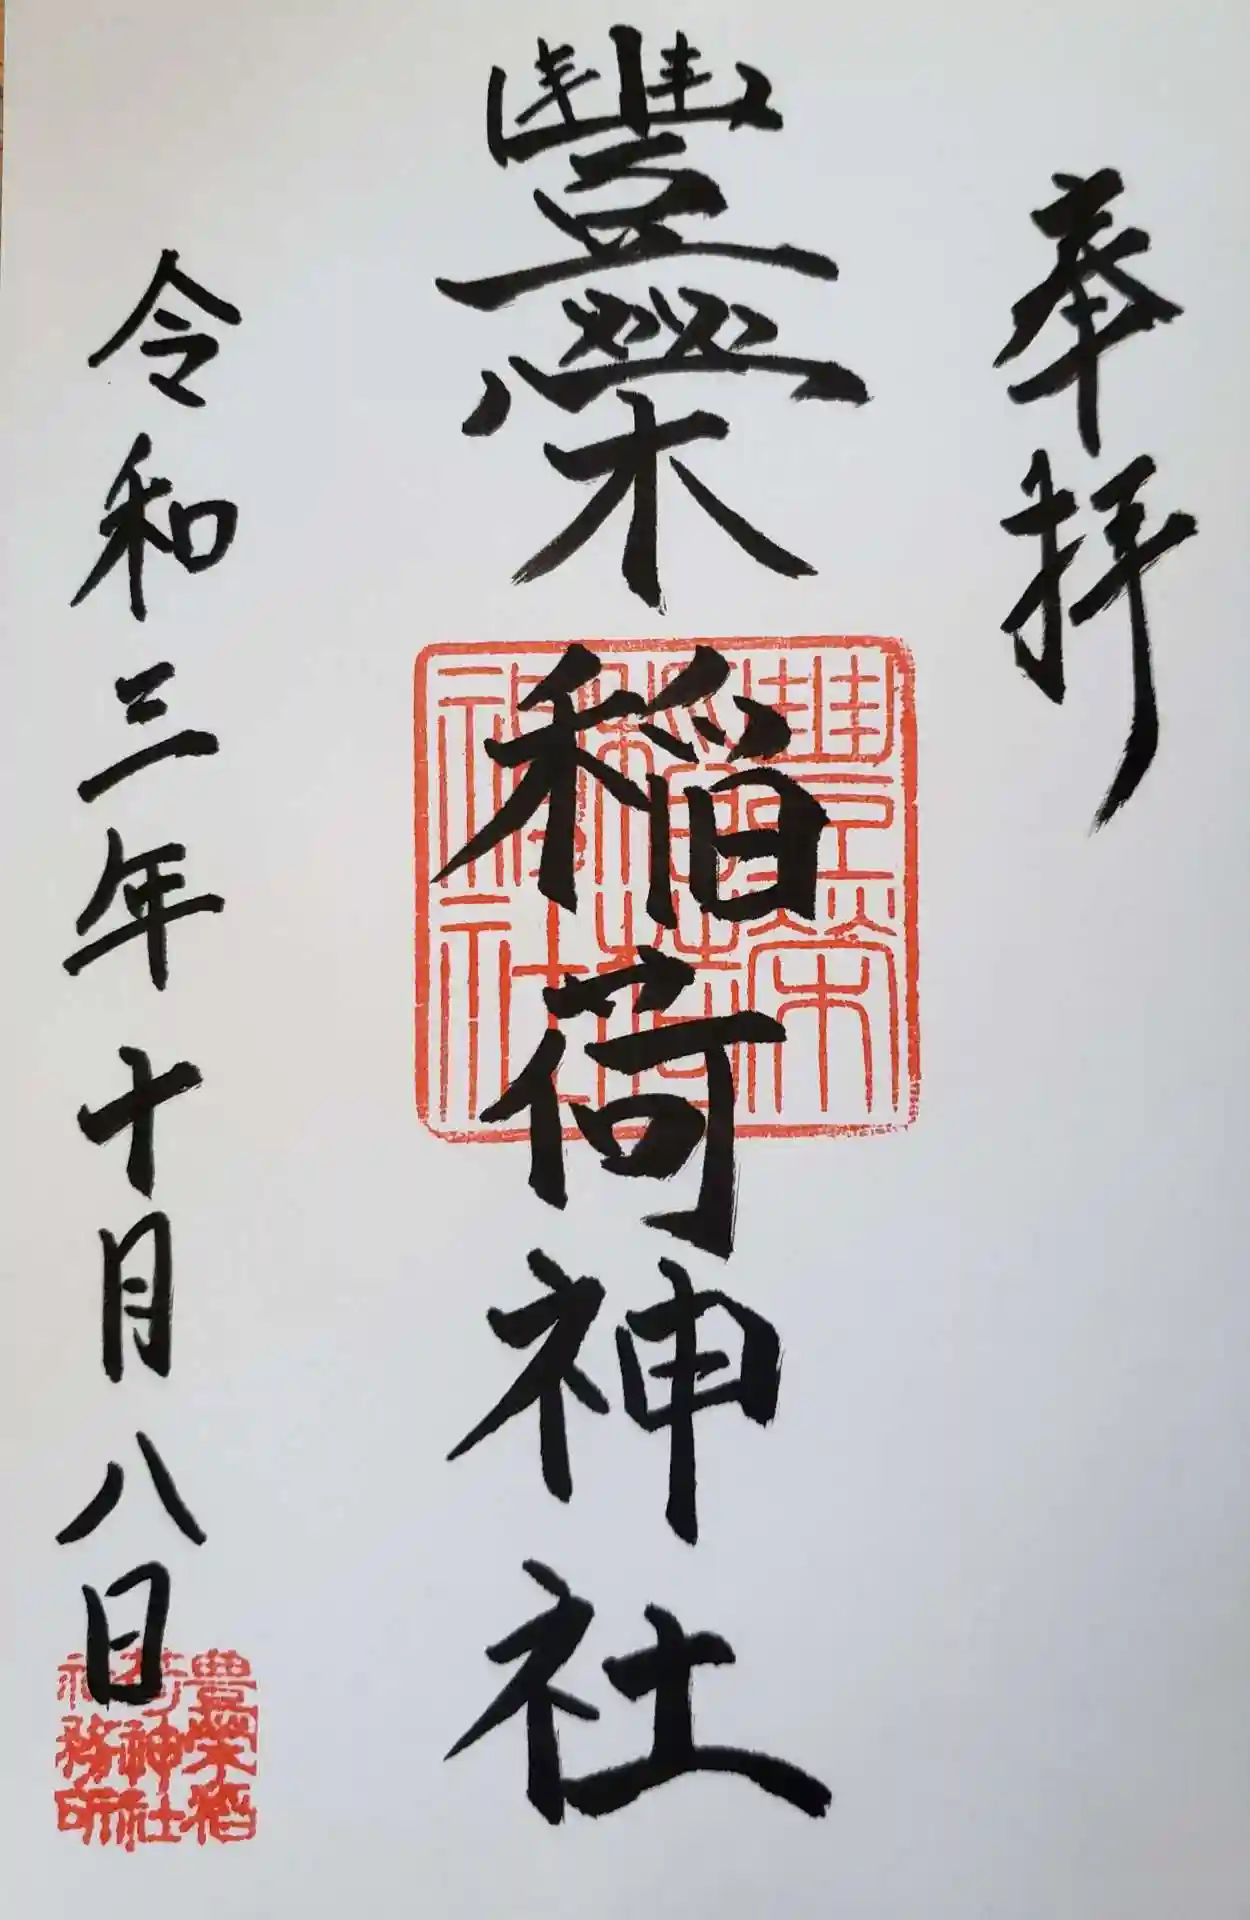 奉拝
豐榮稲荷神社
豐榮稲荷神社
令和三年十月八日
豊榮稲荷神社社務所